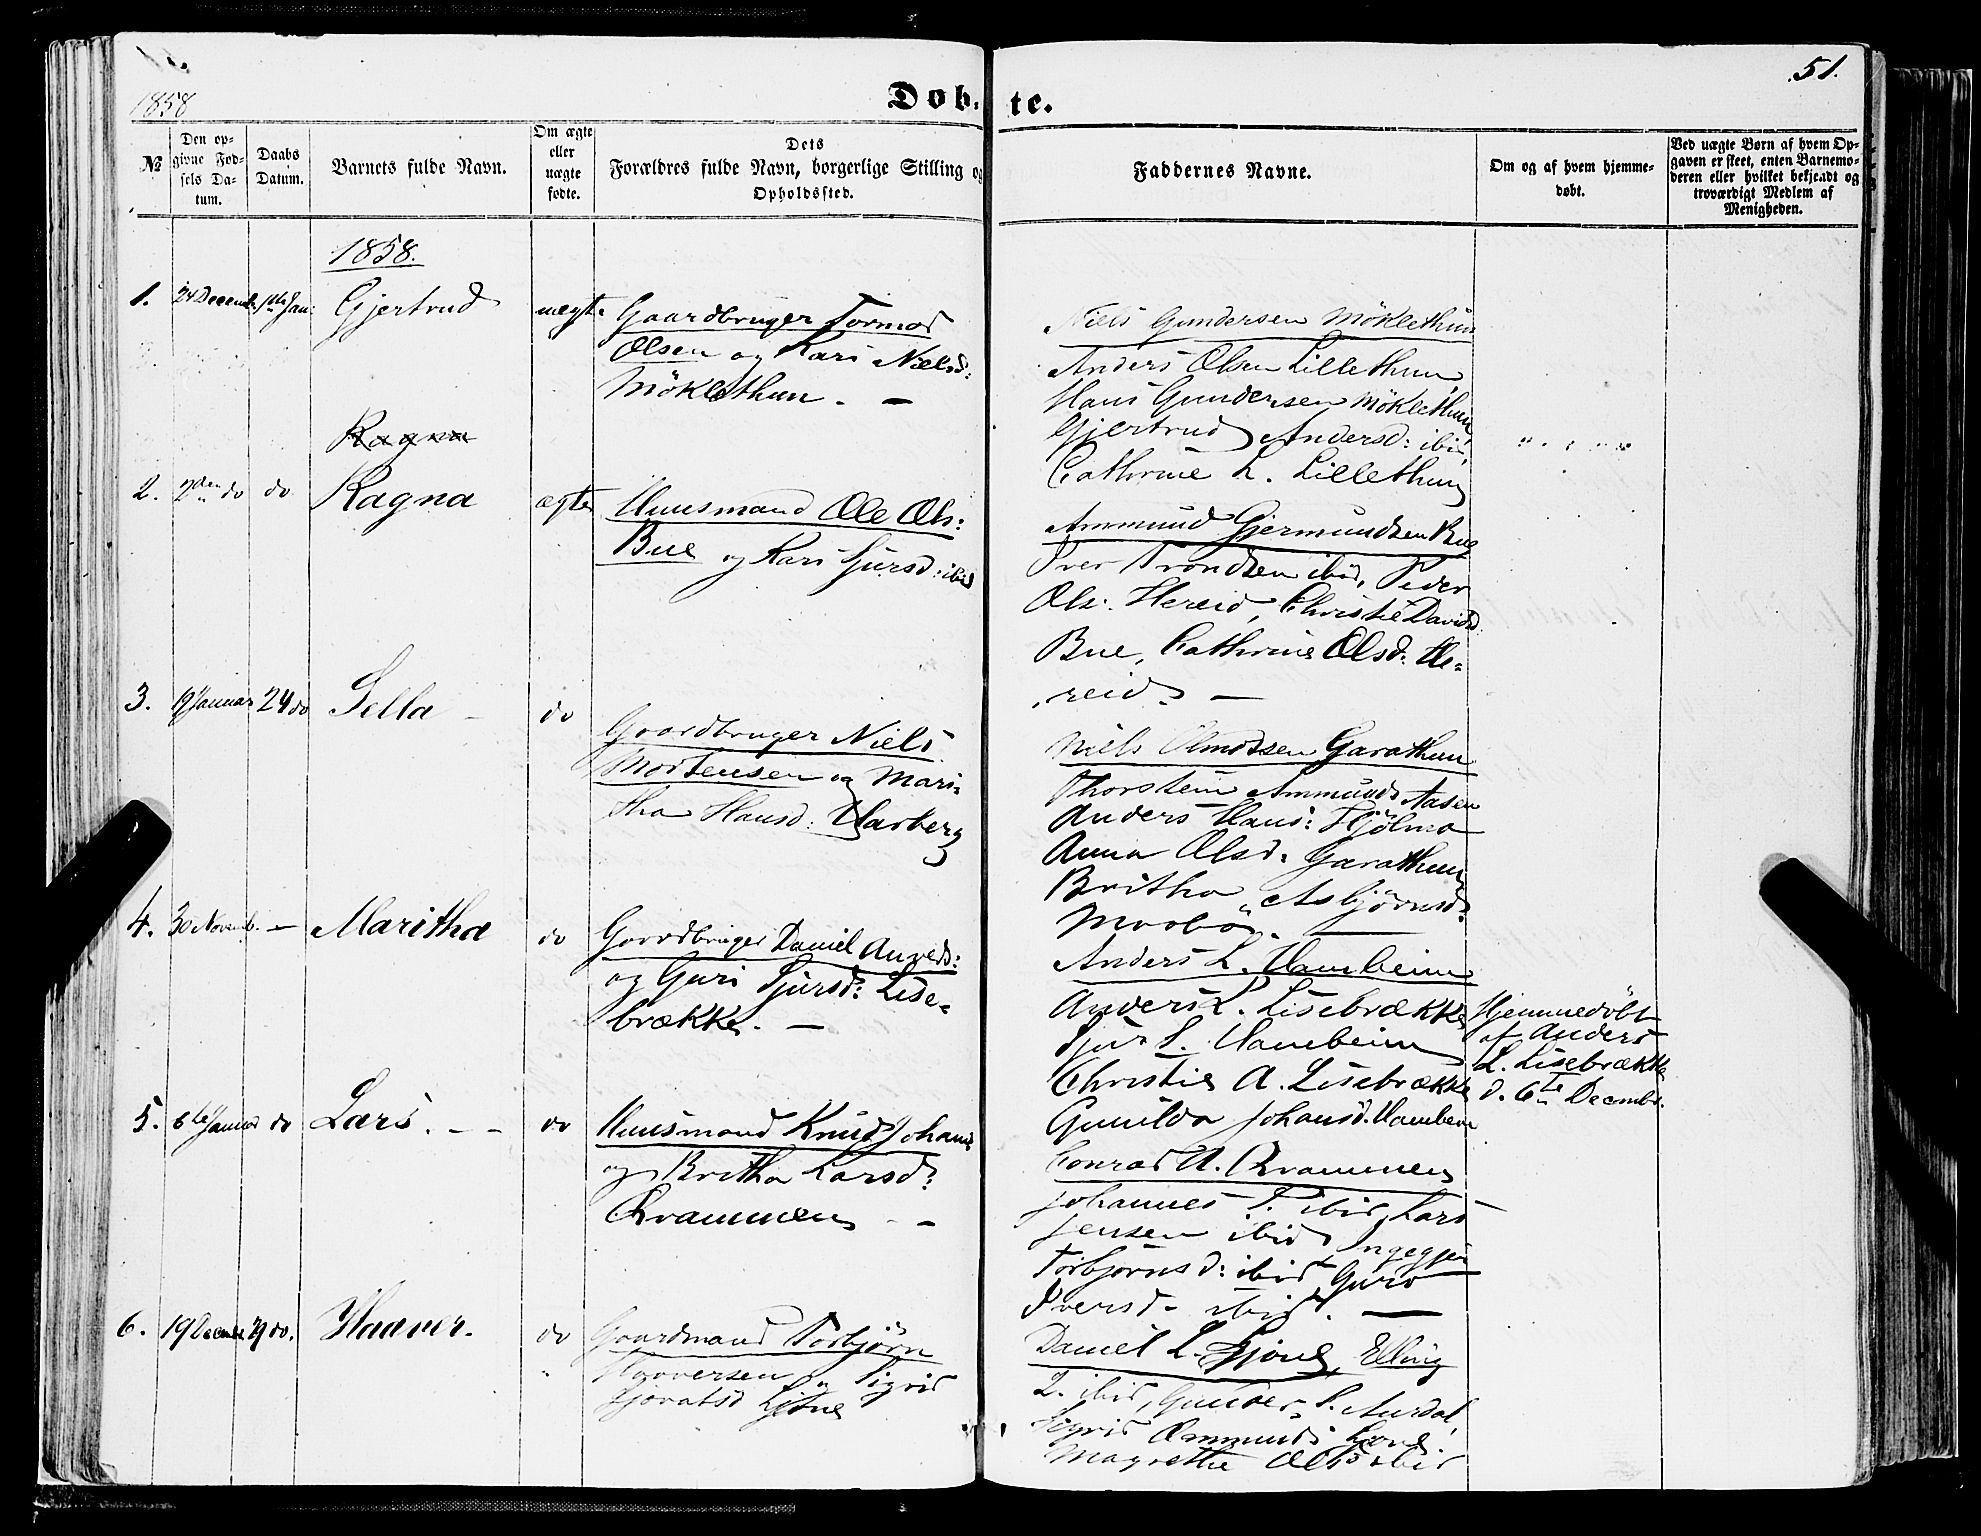 51.
1858
Døb- te.
№
Den op-
givne Fød-
sels Da-
tum.
Daabs
Datum.
Barnets fulde Navn.
Om ægte
eller
uægte
fødte.
Dets
Forældres fulde Navn, borgerlige Stilling og
Opholdssted.
Faddernes Navne.
Om og af hvem hjemme-
døbt.
Ved uægte Børn af hvem Op-
gaven er skeet, enten Barnemo-
deren eller hvilket bekjendt og
troværdigt Medlem af
Menigheden.
1858.
1. 24 Decemb. 1ste Jan: Gjertrud
Gaardbruger Tormod
Olsen og Kari Nielsd:
Möklethun. —
Niels Gundersen Möklethun
Anders Olsen Lillethun,
Hans Gundersen Möklethun,
Gjertrud Andersd: ibid,
Cathrine L. Lillethun
Ragna
2. do do Ragna ægte
Huusmand Ole Ols:
Bue og Kari Sjursd: ibid
Ammund Gjermundsen Bue
Iver Trondsen ibid, Peder
Ols: Hereid, Christie Davidsd:
Bue, Cathrine Olsd: He-
reid. —
3. 19 Januar 24 do Sella — do
Gaardbruger Niels
Mortensen og Mari-
tha Hansd: Garberg
Niels Garathun
Thorstein Ammunds Aasen
Anders Hans: Hjölmo
Anna Olsd: Garathun,
Britha Asbjörnsd:
Maabö. —
4. 30 Novemb. — Maritha do
Gaardbruger Daniel
og Guri Sjursd: Lise-
brække. —
Anders L. Hameheim
Anders L. Lisebrække
Sjur L. Hameheim
Christie A. Lisebrække
Gunilda Johansd. Hameheim
Hjemmedöbt
af Anders
L. Lisebrække
d. 6te Decembr.
5. 6te Januar do Lars. — — do
Huusmand Knud Johans
og Britha Larsd:
Kvammen — —
Conrad A. Kvammen
Johannes T. ibid, Lars
Jensen ibid, Ingegjer
Torbjörnsd: ibid, Guro
Iversd. ibid. —
6. 19 Decembr 24 do. Haaver. do
Gaardmand Torbjörn
Haaversen og Sigrid
Daniel L. Elling
L. ibid, Gunder L. Aurdal
Sigrid
Magrethe Ols ibid